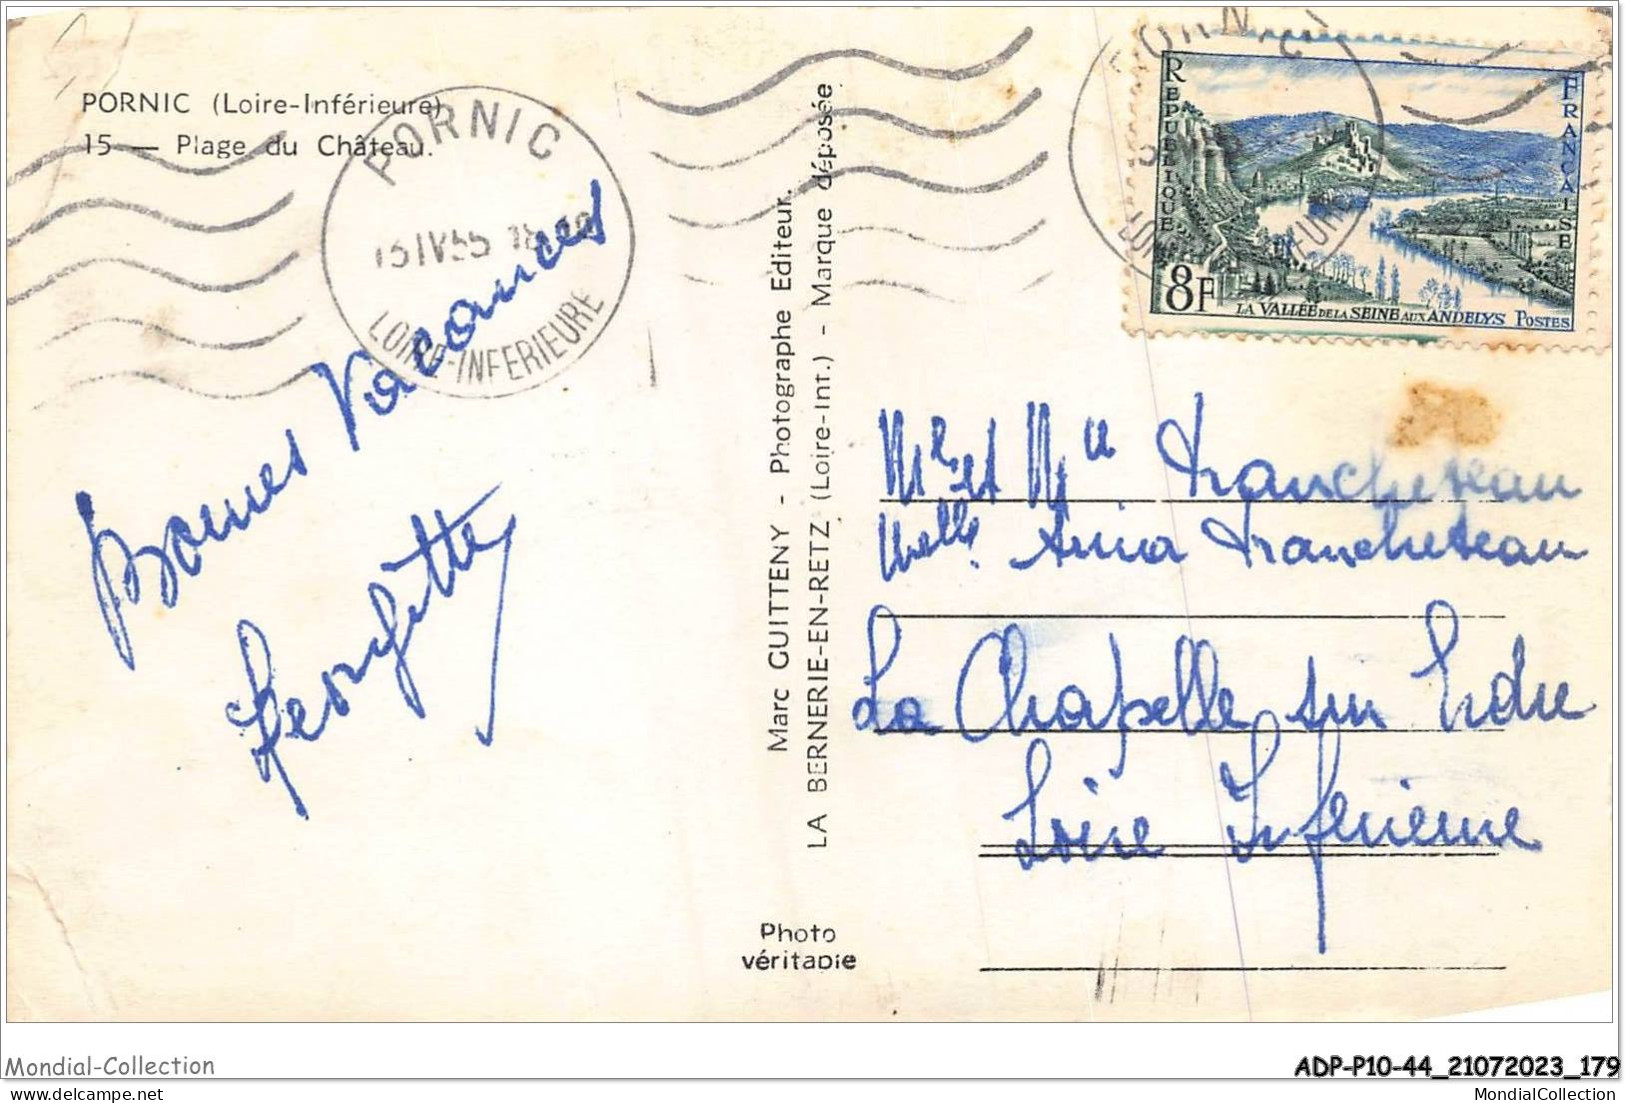 PORNIC (Loire-Inférieure)
15 — Plage du Château.
PORNIC
15 IV 55 18
LOIRE-INFERIEURE
Bonnes Vacances
Georgette
Marc GUITTENY - Photographe Editeur.
LA BERNERIE-EN-RETZ (Loire-Inf.) - Marque déposée
Photo
véritable
PORNIC
REPUBLIQUE
FRANÇAISE
8F
LA VALLÉE DE LA SEINE AUX ANDELYS POSTES
Mr et Mme Trancheteau
Melle Anna Trancheteau
La Chapelle sur Erdre
Loire Inférieure
Mondial-Collection
ADP-P10-44_21072023_179
MondialCollection